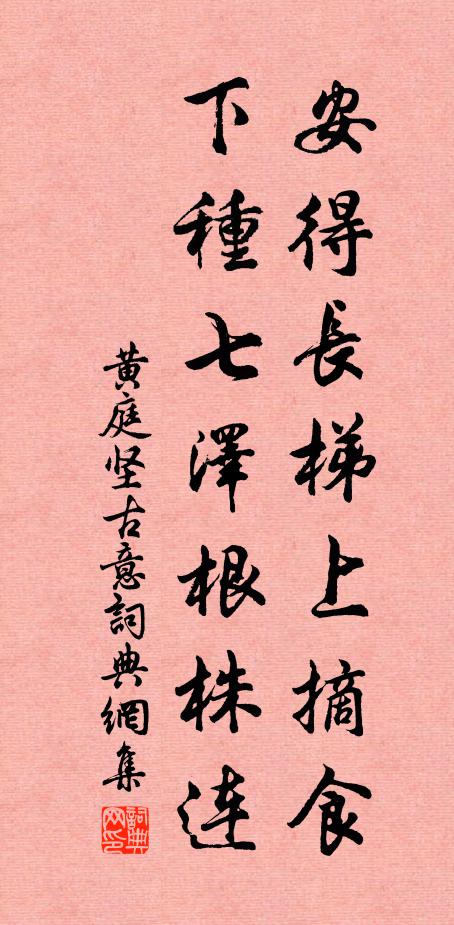 安得長梯上摘食
下種七澤根株连
黄庭坚古意詞典網集
詞典网印